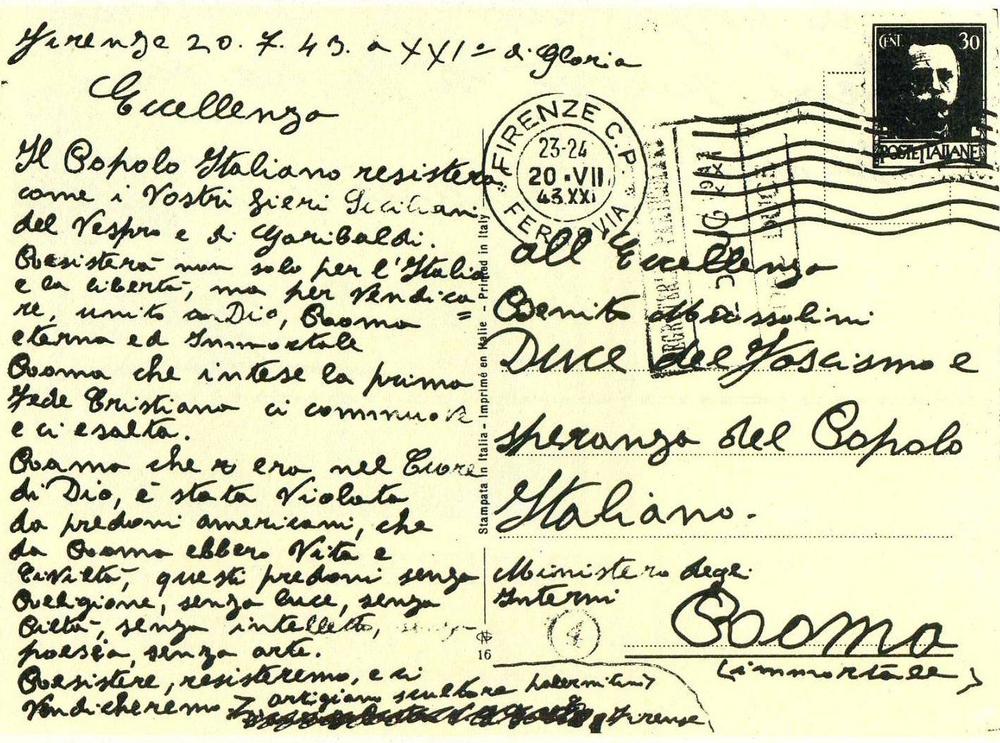 Firenze 20. 7. 43. a XXI° di Gloria
Eccellenza
Il Popolo Italiano resisterà
come i Vostri Fieri Siciliani
del Vespro e di Garibaldi.
Resisterà non solo per l'Italia
e la libertà, ma per Vendica=
re, unito a Dio, Roma
eterna ed Immortale
Roma che intese la prima
Fede Cristiana ci commuove
e ci esalta.
Roma che era nel Cuore
di Dio, è stata Violata
da predoni americani, che
da Roma ebbero Vita e
Civiltà, questi predoni senza
Religione, senza luce, senza
senza intelletto,
poesia, senza arte.
Resistere, resisteremo, e ci
Vendicheremo
artigiano scultore palermitano
Firenze
Stampata in Italia - Imprimé en Italie - Printed in Italy
16
CENT 30
POSTE ITALIANE
FIRENZE C.P.
23-24
20 •VII
43.XXI
FERROVIA
All'Eccellenza
Benito Mussolini
Duce del Fascismo e
speranza del Popolo
Italiano.
Ministero degli
Interni
4
Roma
(immortale)